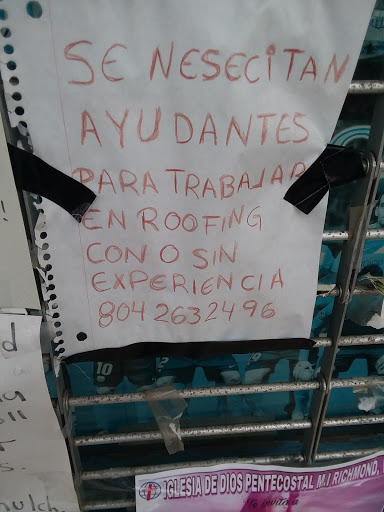 SE NESECITAN
AYUDANTES
PARA TRABAJAR
EN ROOFING
CON O SIN
EXPERIENCIA
804 2632496
10
IGLESIA DE DIOS PENTECOSTAL M.I RICHMOND,
Te invita a
mulch.